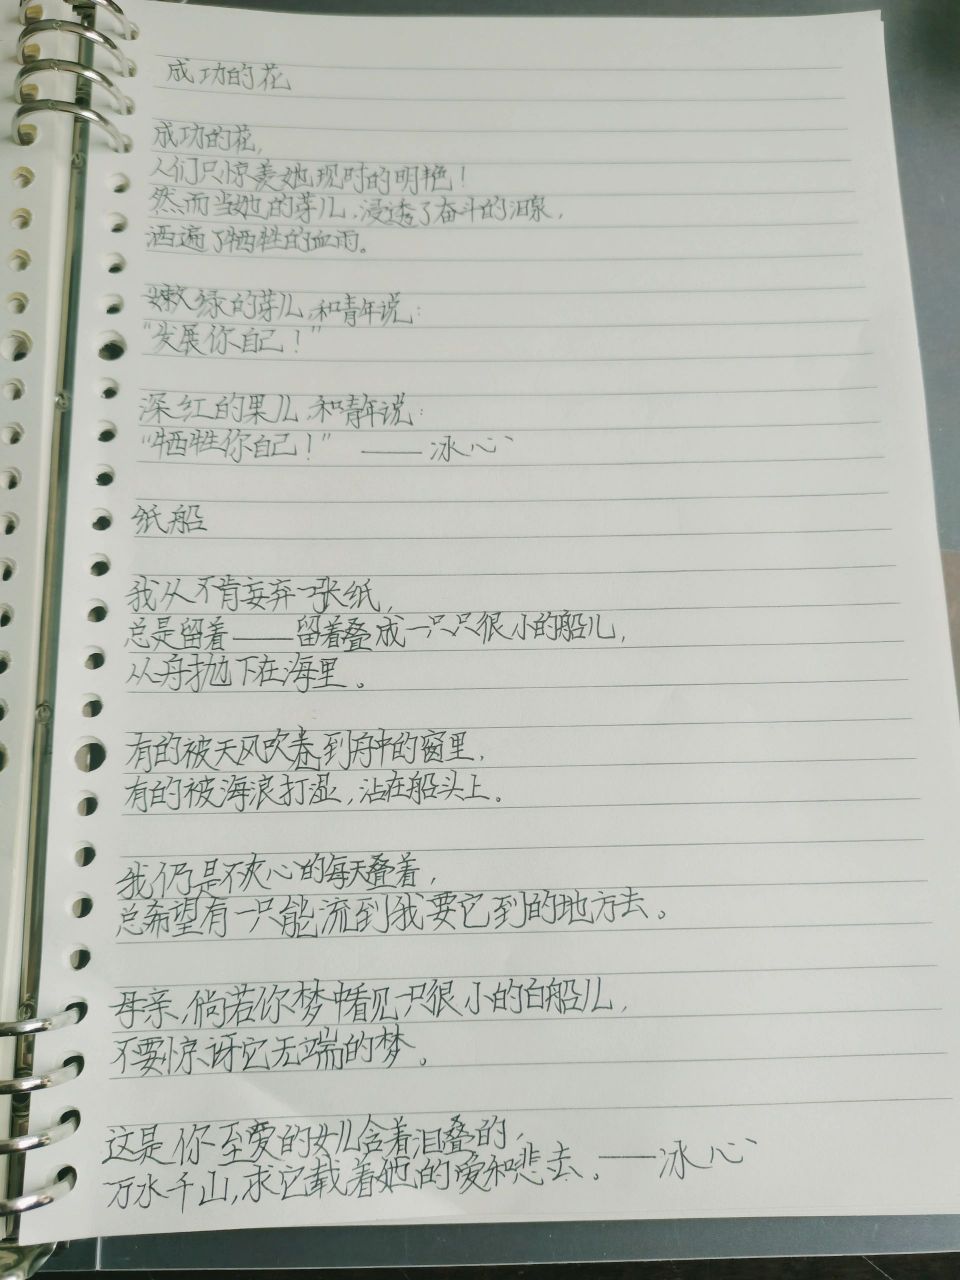 成功的花
成功的花，
人们只惊羡她现时的明艳！
然而当她的芽儿，浸透了奋斗的泪泉，
洒遍了牺牲的血雨。
嫩绿的芽儿，和青年说：
“发展你自己！”
深红的果儿，和青年说：
“牺牲你自己！” ——冰心
纸船
我从不肯妄弃一张纸，
总是留着——留着叠成一只只很小的船儿，
从舟抛下在海里。
有的被天风吹卷到舟中的窗里，
有的被海浪打湿，沾在船头上。
我仍是不灰心的每天叠着，
总希望有一只能流到我要它到的地方去。
母亲，倘若你梦中看见一只很小的白船儿，
不要惊讶它无端的梦。
这是你至爱的女儿含着泪叠的，
万水千山，求它载着她的爱和悲去。——冰心